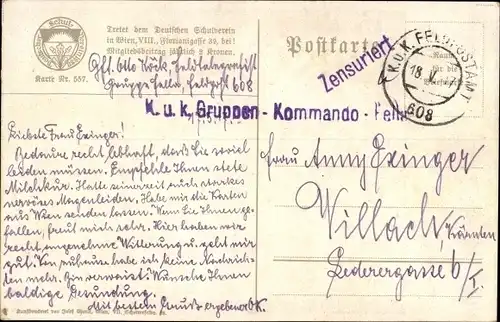 Tretet dem Deutschen Schulverein
in Wien, VIII., Florianigasse 39, bei!
Mitgliedsbeitrag jährlich 2 Kronen.
Karte Nr. 557.
Postkarte
Zensuriert
K.u.K. FELDPOSTAMT
18. V.
608
Otto Böck,
Feldpost 608
K. u. k. Gruppen - Kommando -
Liebste Frau Exinger!
Bedaure recht lebhaft, dass Sie soviel
leiden müssen. Empfehle Ihnen stets
Milchkur. Hatte seinerzeit auch starkes
nervöses Magenleiden. Habe mir die Karten
aus Wien senden lassen. Wenn Sie Ihnen ge-
fallen, freut mich sehr. Hier haben wir
recht angenehme Witterung u. geht mir
gut. Von zuhause habe ich keine Nachrich-
ten mehr. Bin verwaist! Wünsche Ihnen
baldige Gesundung.
Mit besten Grüß ergebenst
Frau Anny Exinger
Villach, Kärnten
Lederergasse 6/I
Kunstdruckerei von Josef